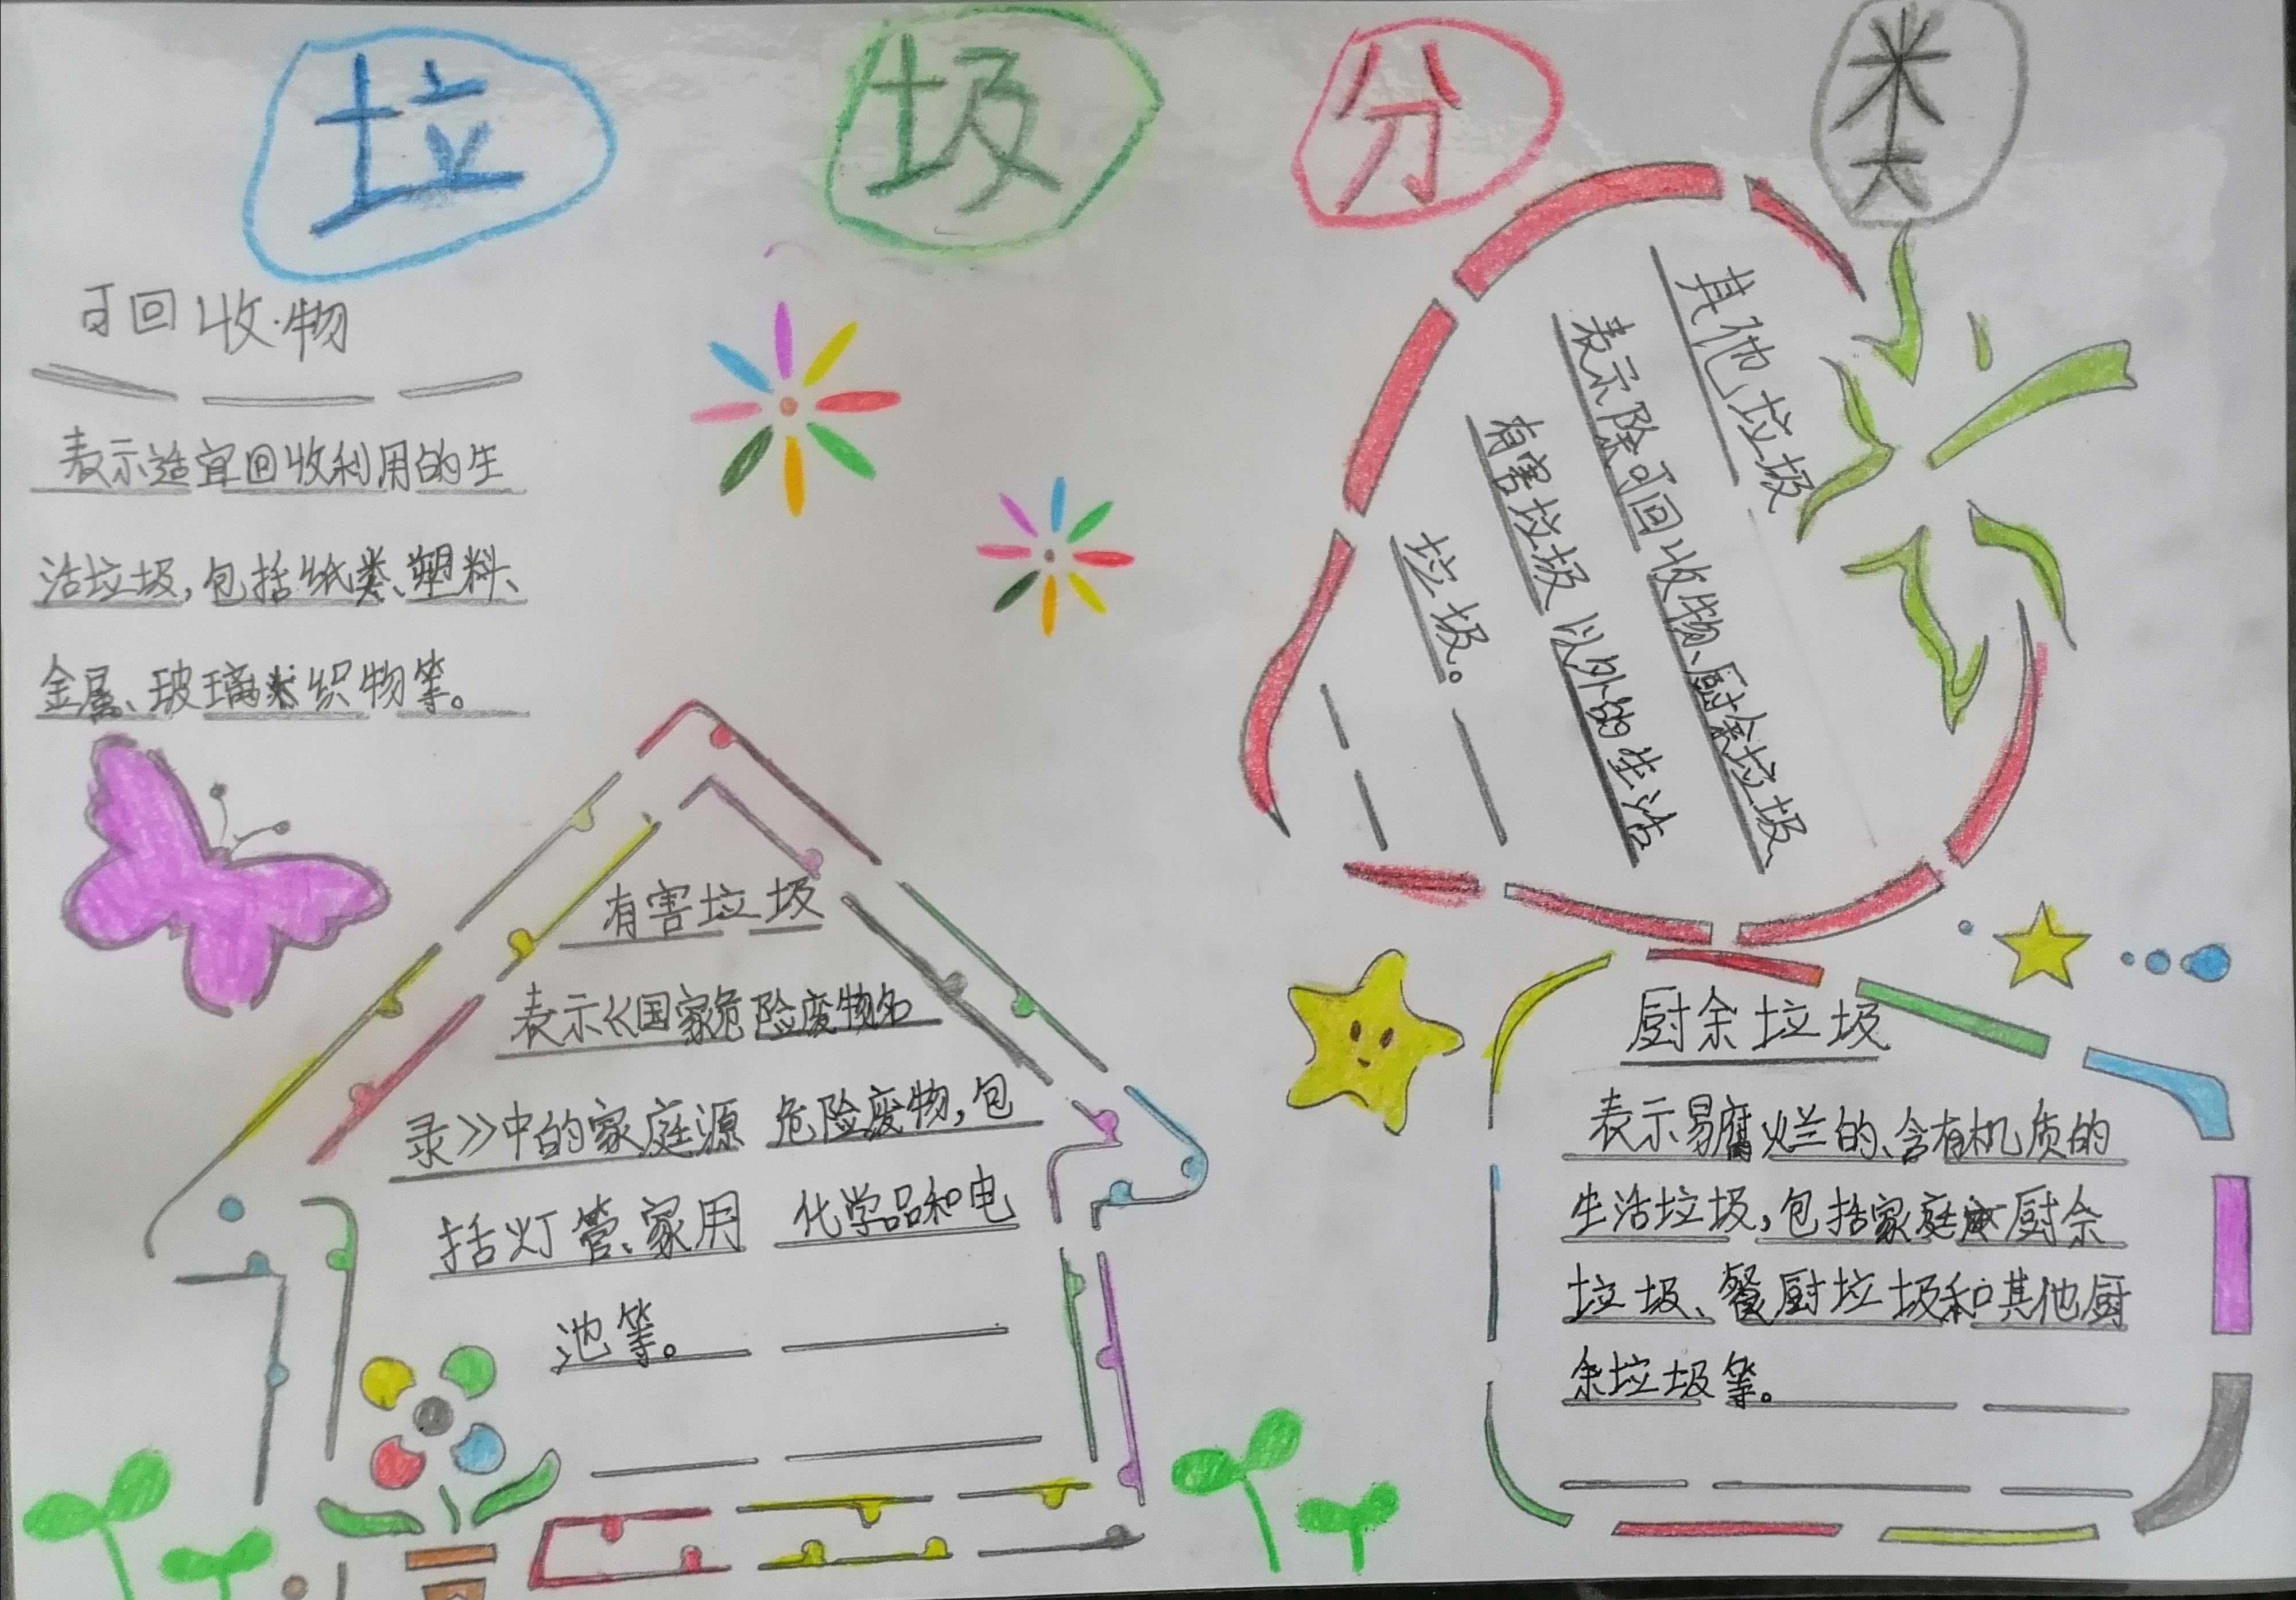 垃圾分类
可回收物
表示适宜回收利用的生
活垃圾,包括纸类、塑料、
金属、玻璃 织物等。
有害垃圾
表示《国家危险废物名
录》中的家庭源 危险废物,包
括灯管、家用 化学品和电
池等。
其他垃圾
表示除可回收物、厨余垃圾、
有害垃圾以外的生活
垃圾。
厨余垃圾
表示易腐烂的、含有机质的
生活垃圾,包括家庭 厨余
垃圾、餐厨垃圾和其他厨
余垃圾等。